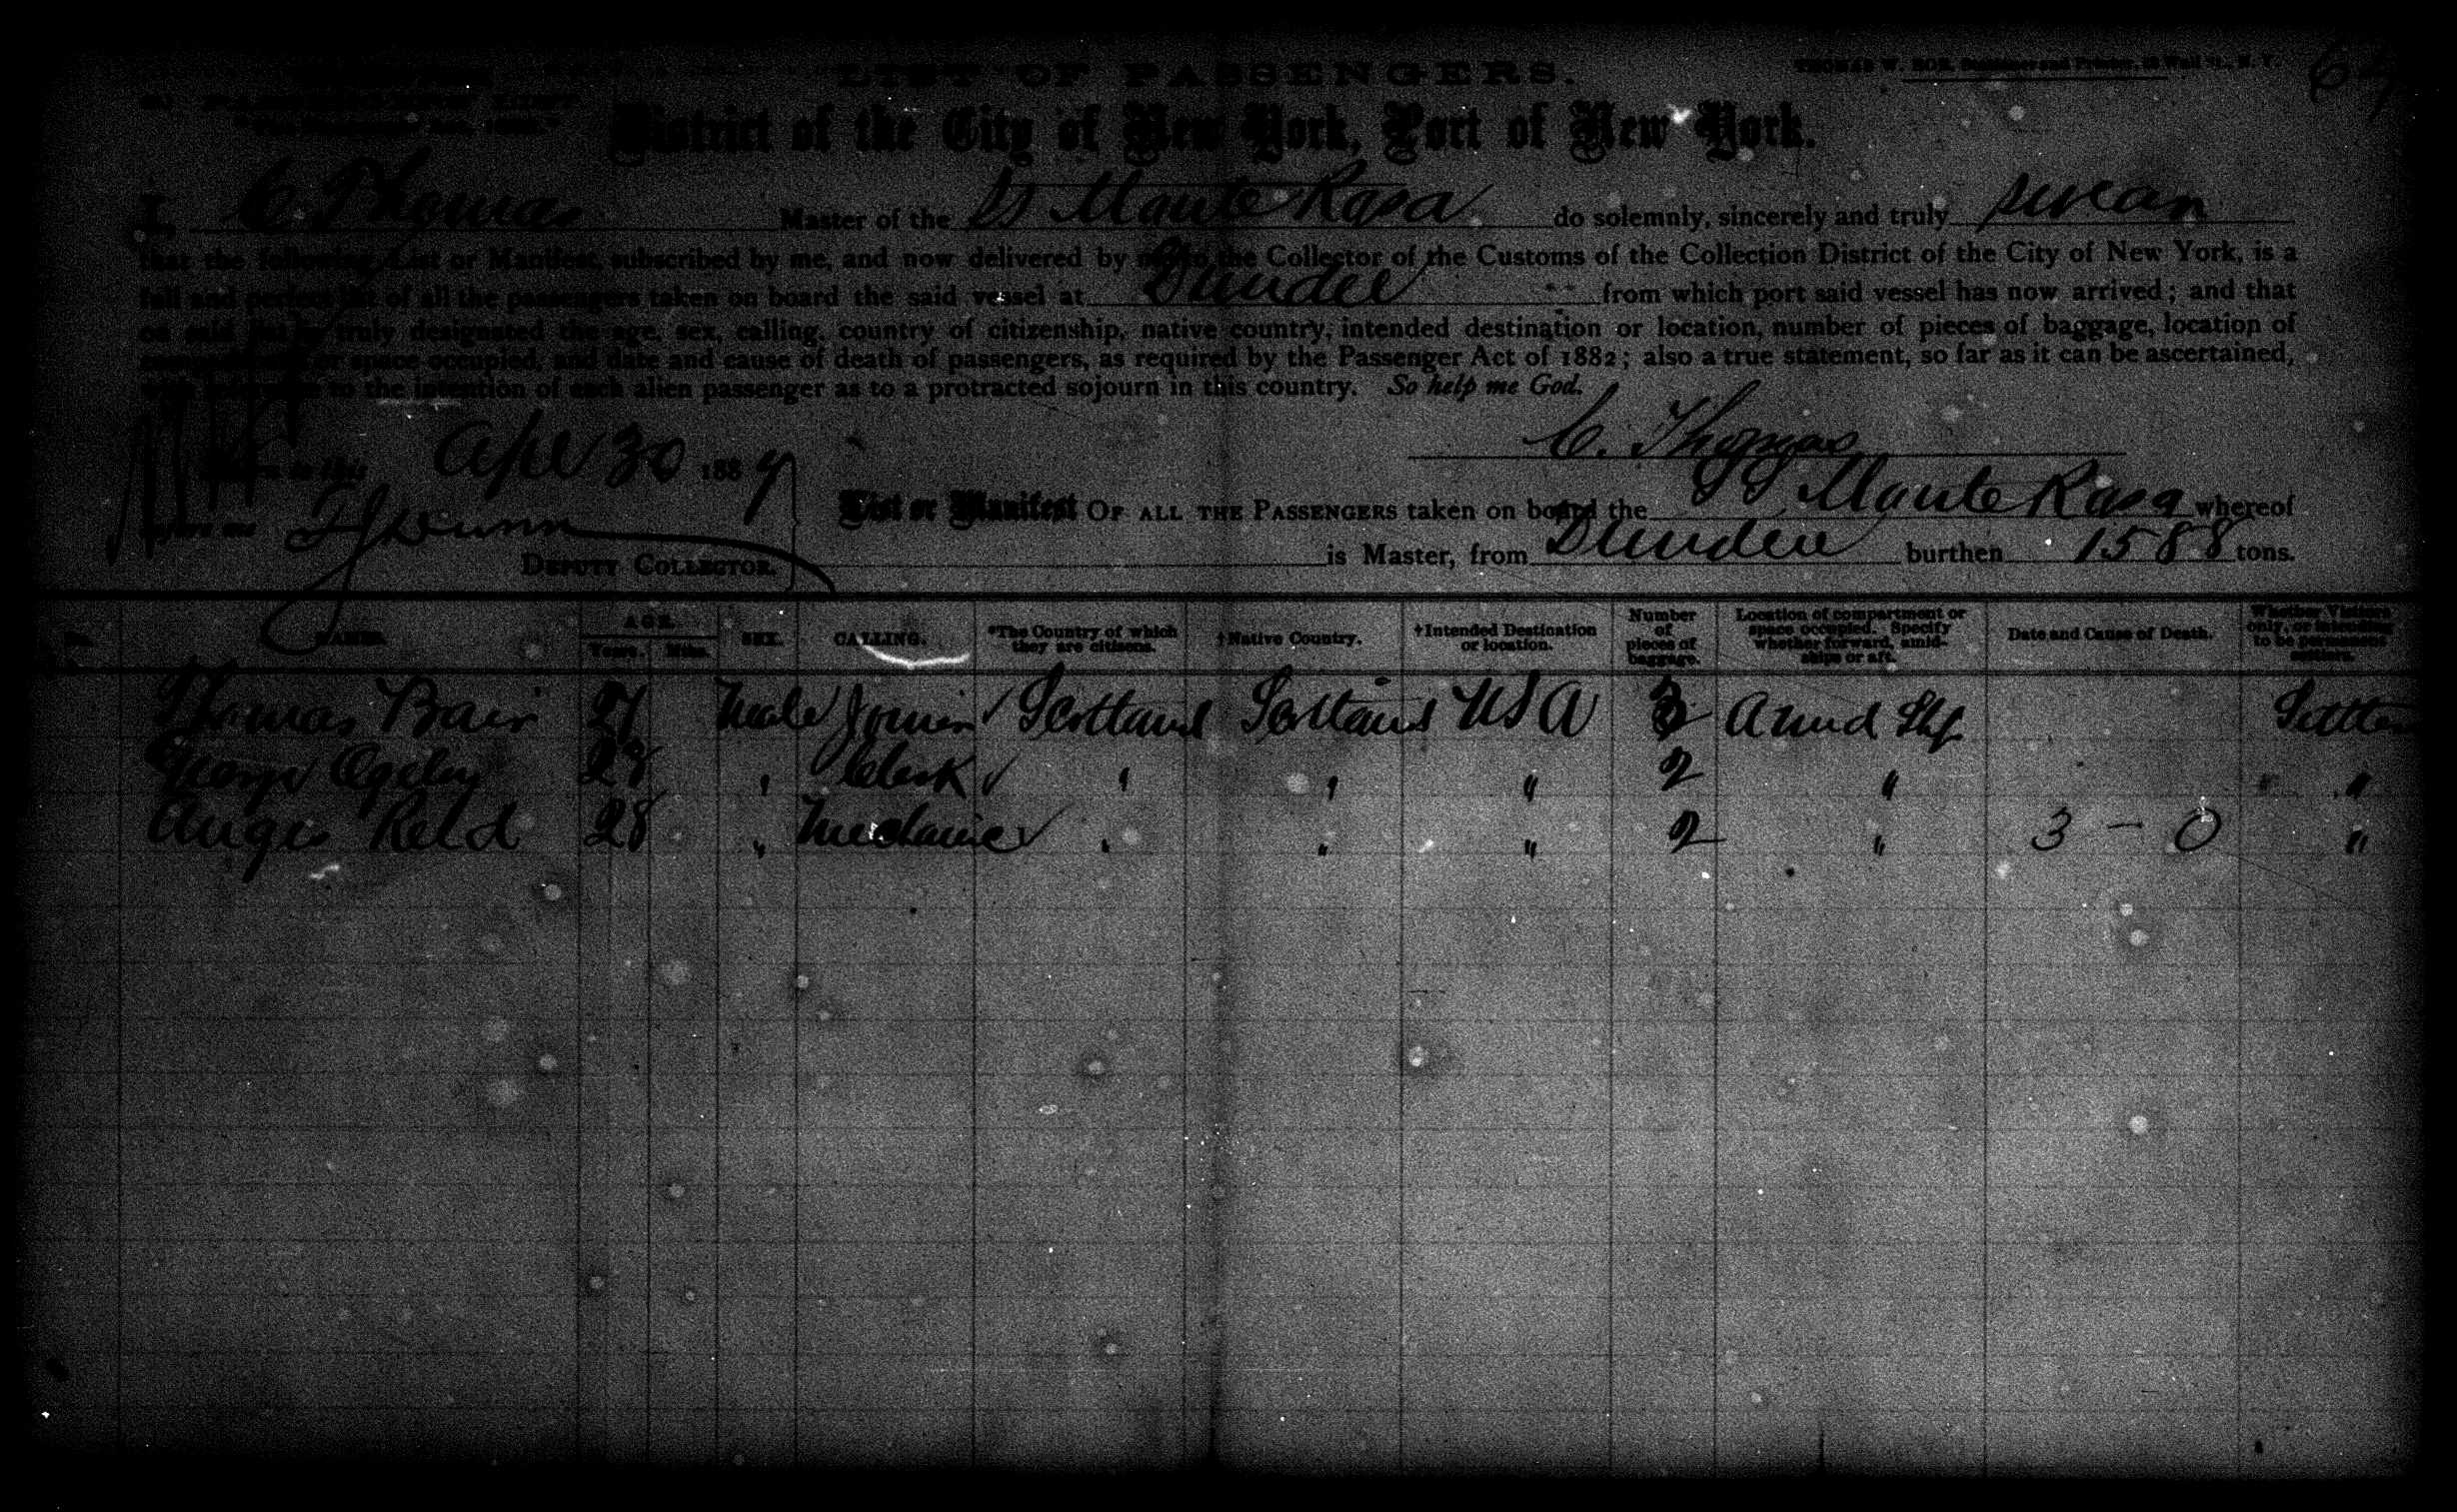 LIST OF PASSENGERS.
THOMAS W. ROE, Stationer and Printer, Wall St., N. Y.
District of the City of New York, Port of New York.
I, C. Thomas Master of the SS Monte Rosa do solemnly, sincerely and truly swear
that the following List or Manifest, subscribed by me, and now delivered by me to the Collector of the Customs of the Collection District of the City of New York, is a
full and perfect list of all the passengers taken on board the said vessel at Dundee from which port said vessel has now arrived; and that
on said list is truly designated the age, sex, calling, country of citizenship, native country, intended destination or location, number of pieces of baggage, location of
compartment or space occupied, and date and cause of death of passengers, as required by the Passenger Act of 1882; also a true statement, so far as it can be ascertained,
with reference to the intention of each alien passenger as to a protracted sojourn in this country. So help me God.
C. Thomas
Sworn to this Apl 30 1887
before me
DEPUTY COLLECTOR.
List or Manifest OF ALL THE PASSENGERS taken on board the SS Monte Rosa whereof
is Master, from Dundee burthen 1588 tons.
No. NAMES. AGE. Years. Mths. SEX. CALLING. *The Country of which they are citizens. †Native Country. †Intended Destination or location. Number of pieces of baggage. Location of compartment or space occupied. Specify whether forward, amidships or aft. Date and Cause of Death. Whether Visitors only, or intending to be permanent settlers.
Thomas Bair 27 Male Joiner ✓ Scotland Scotland USA 3
George Ogilvy 28 " Clerk ✓ " " " 2 " "
Angus Reid 28 " Mechanic ✓ " " " 2 " 3 - 0 "